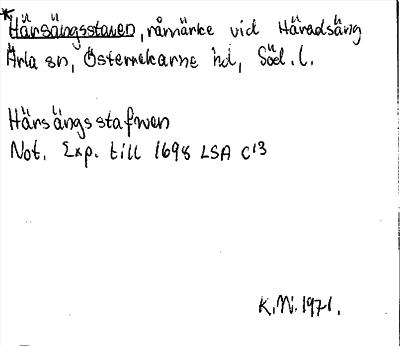 *Härsängsstaven, råmärke vid Häradsäng
Ärla sn, Österrekarne hd, Söd. l.
Härsängsstafwen
Not. Exp. till 1698 LSA C¹³
K.N. 1971.